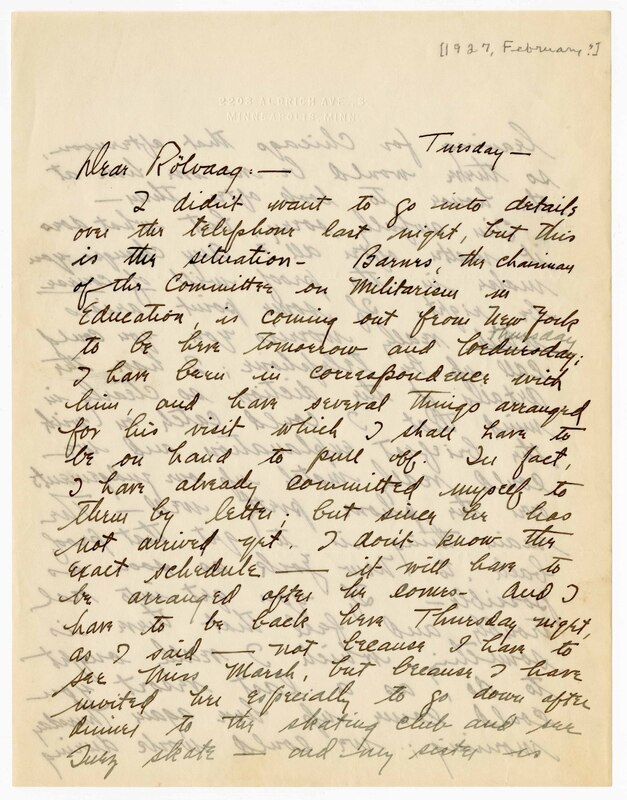 [1927, February?]
2203 ALDRICH AVE. S.
MINNEAPOLIS, MINN.
Tuesday—
Dear Rölvaag:—
I didn't want to go into details
over the telephone last night, but this
is the situation— Barnes, the chairman
of the Committee on Militarism in
Education, is coming out from New York
Thursday
to be here tomorrow and Wednesday;
I have been in correspondence with
him, and have several things arranged
for his visit which I shall have to
be on hand to pull off. In fact,
I have already committed myself to
them by letter; but since he has
not arrived yet, I don't know the
exact schedule — it will have to
be arranged after he comes— And I
have to be back here Thursday night,
as I said — not because I have to
see Miss Marsh, but because I have
invited her especially to go down after
dinner to the skating club and see
Suzy skate — and my sister is